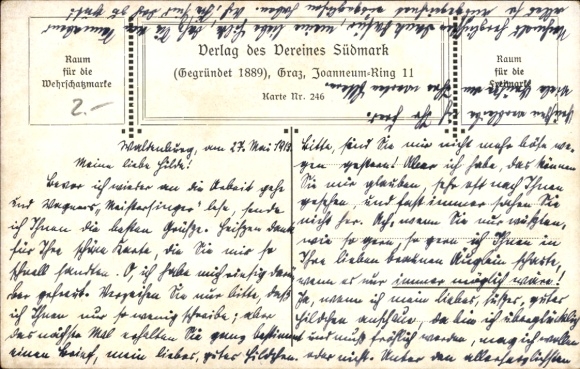 Verlag des Vereines Südmark
(Gegründet 1889), Graz, Joanneum-Ring 11
Karte Nr. 246
Raum
für die
Wehrschatzmarke
2.-
Raum
für die
Freimarke
Waldenburg, am 27. Mai
Meine liebe Hilde!
Bevor ich wieder an die Arbeit gehe
und Wagners „Meistersinger" lese, sende
ich Ihnen die besten Grüße. Heißen Dank
für Ihre schöne Karte, die Sie mir so
schnell sandten. O, ich habe mich riesig
gefreut. Verzeihen Sie mir bitte, daß
ich Ihnen nur so wenig schreibe; aber
das nächste Mal erhalten Sie ganz bestimmt
einen Brief, mein liebes, gutes Hildchen.
Bitte, sind Sie mir nicht mehr böse we-
gen gestern! Aber ich habe, das können
Sie mir glauben, sehr oft nach Ihnen
gesehen, und fast immer sahen Sie
nicht her. Ach wenn Sie nur wüßten,
wie so gern, so gern ich Ihnen in
Ihre lieben braunen Äuglein schaute,
wenn es nur immer möglich wäre!
Ja, wenn ich mein liebes, süßes, gutes
Hildchen anschaue, da bin ich überglücklich
und muß fröhlich werden, mag ich wollen
oder nicht. Unter den allerherzlichsten